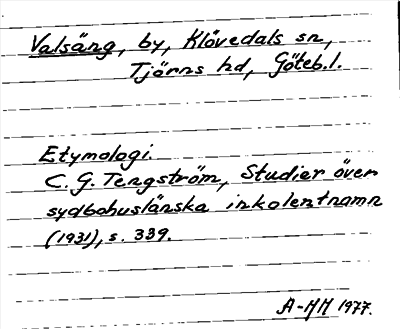 Valsäng, by, Klövedals sn,
Tjörns hd, Göteb.l.
Etymologi.
C. G. Tengström, Studier över
sydbohuslänska inkolentnamn
(1931), s. 339.
A-MM 1977.